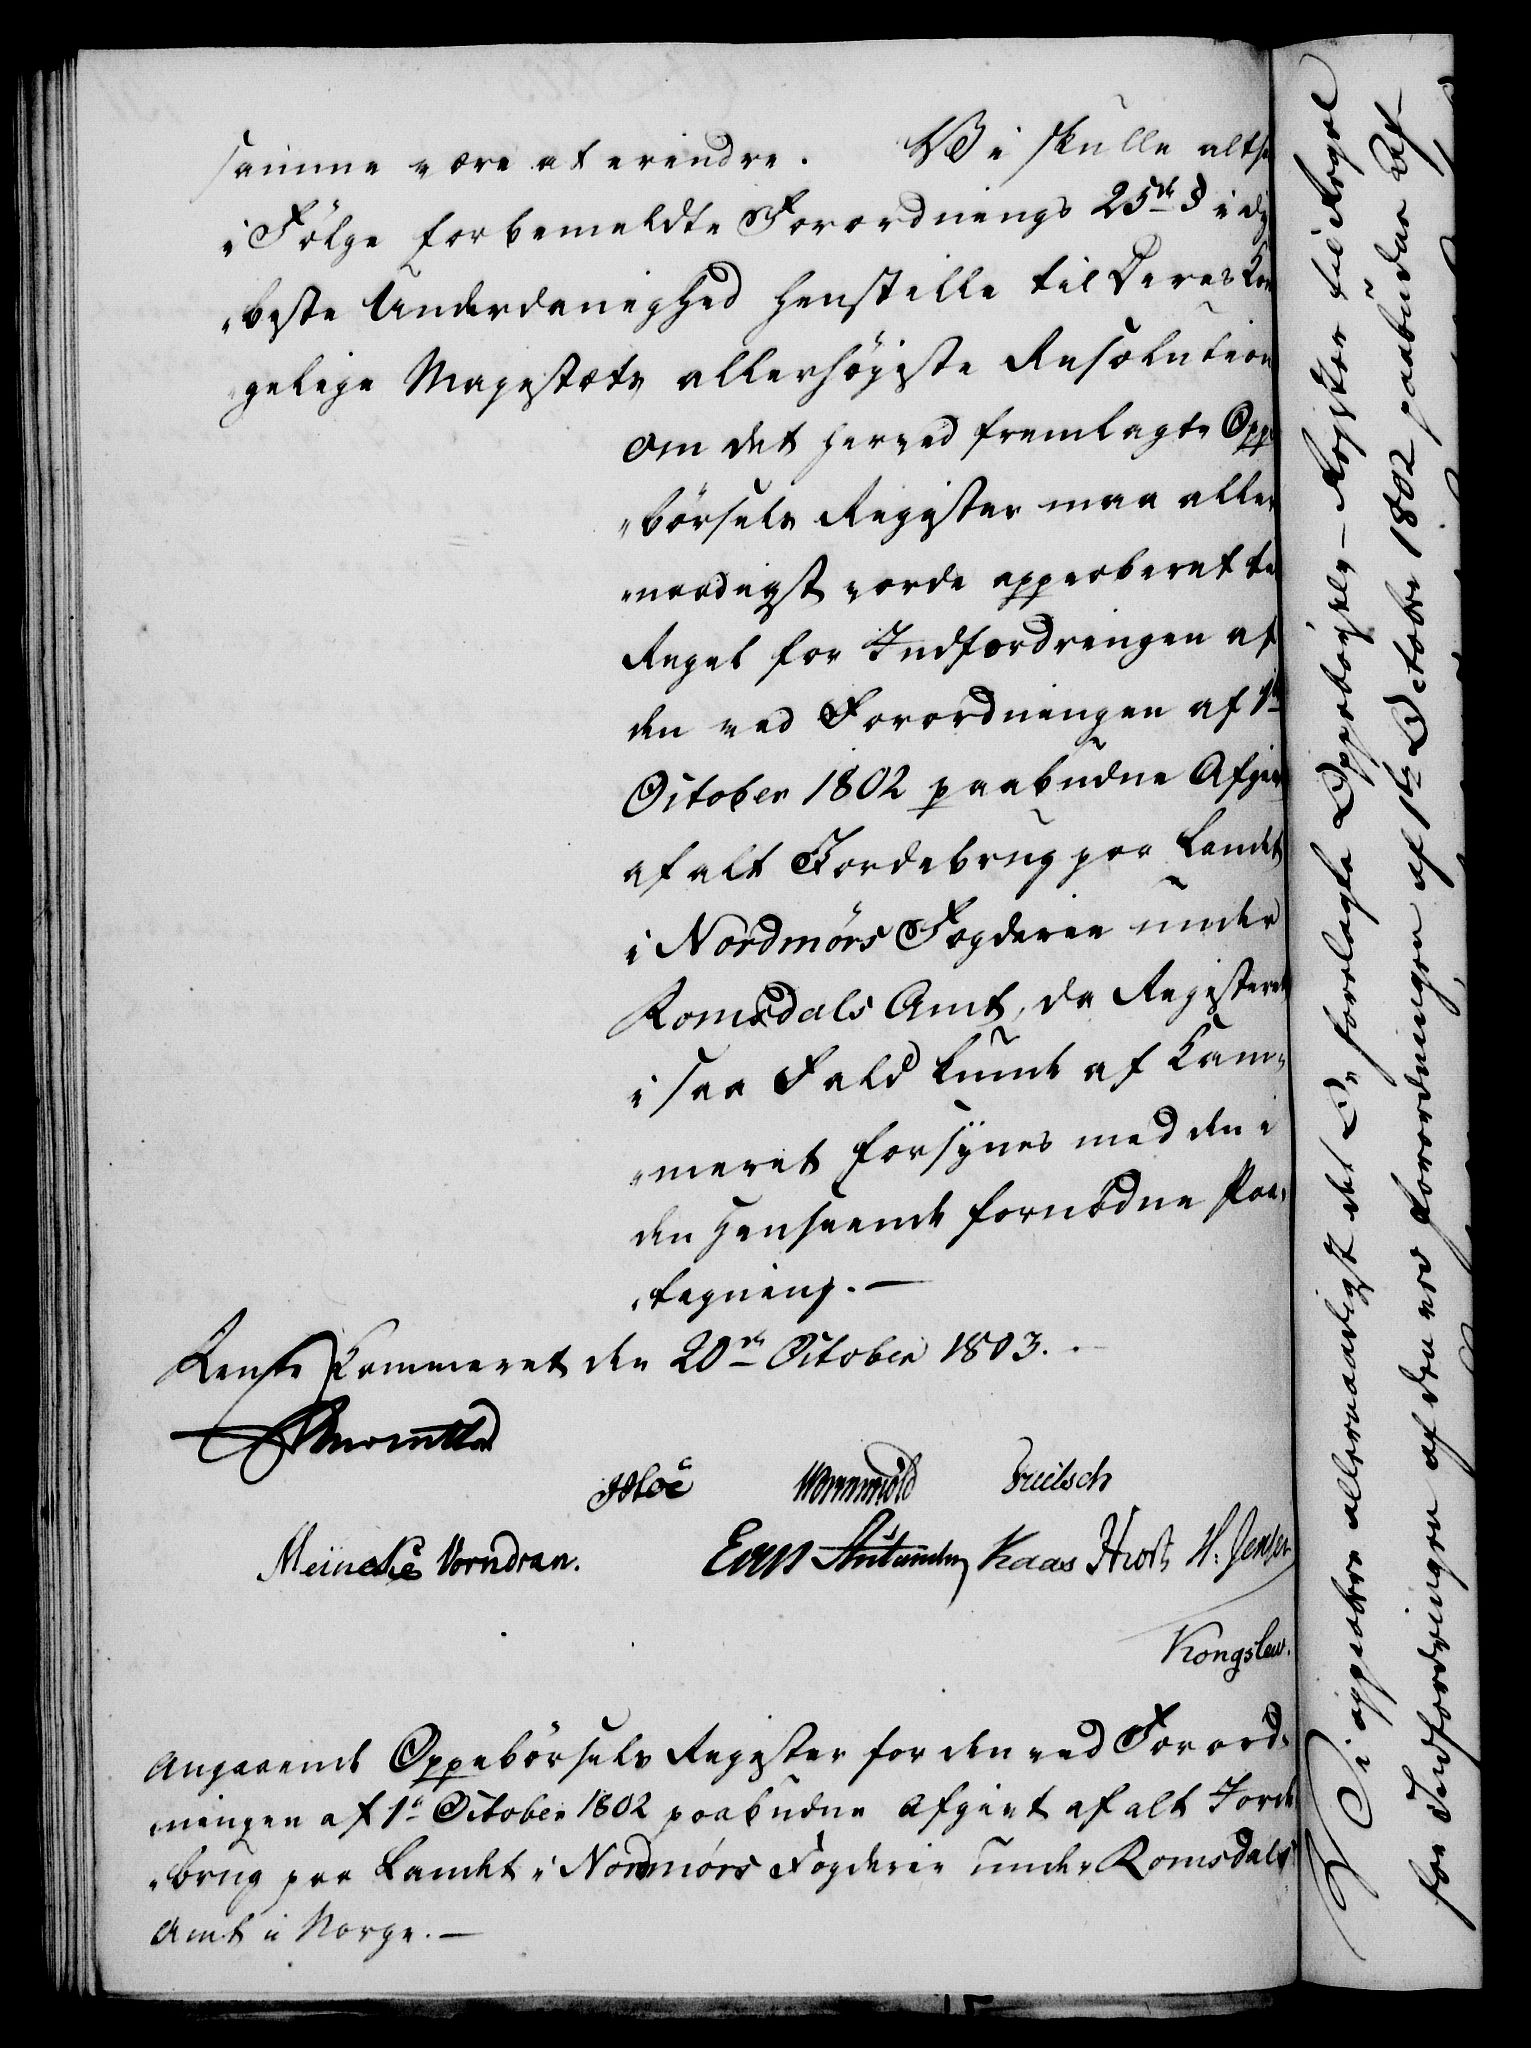 samme være at erindre. Vi skulle altsa
i Følge forbemeldte Forordnings 25de § i dy
„beste Underdanighed henstille til Deres Kon
gelige Majestæts allerhøjeste Resolution
om det herved fremlagte Oppe
„børsels Register maa aller
„naadigst vorde approberet til
Regel for Indfordringen af
den ved Forordningen af 1te
October 1802 paabudne Afgivt
af alt Jordebrug paa Landet
i Nordmørs Fogderie under
Romsdals Amt, da Registeret
i saa Fald kunde af Kam„
„meret forsynes med den i
den Henseende fornødne Paa„
„tegning.—
Rente Kammeret den 20de October 1803.
Hoë Wormskiold Fritsch
Meincke Vorndran. Kaas Hiort H. Jensen
Kongslew.
Angaaende Oppebørsels Register for den ved Forord„
„ningen af 1te October 1802 paabudne Afgivt af alt Jorde
„brug paa Landet i Nordmørs Fogderie under Romsdals
Amt i Norge.—
Vi approbere allernaadigst det Os forelagte Oppebørsels-Register til Regel
for Indfordringen af den ved Forordningen af 1te Octobr 1802 paabudne Af-